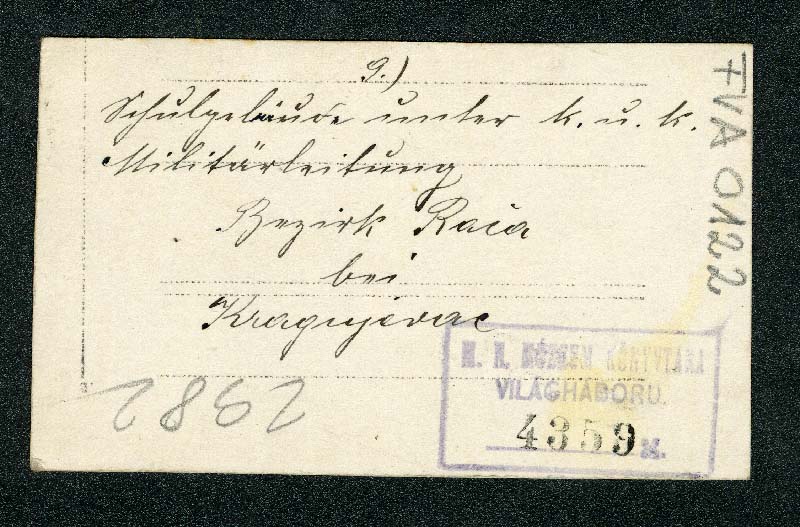 9.)
Schulgebäude unter k. u. k.
Militärleitung
Bezirk Rača
bei
Kragujevac
M. N. MÚZEUM KÖNYVTÁRA
VILÁGHÁBORÚ.
4359 M.
2982
FVA 0122